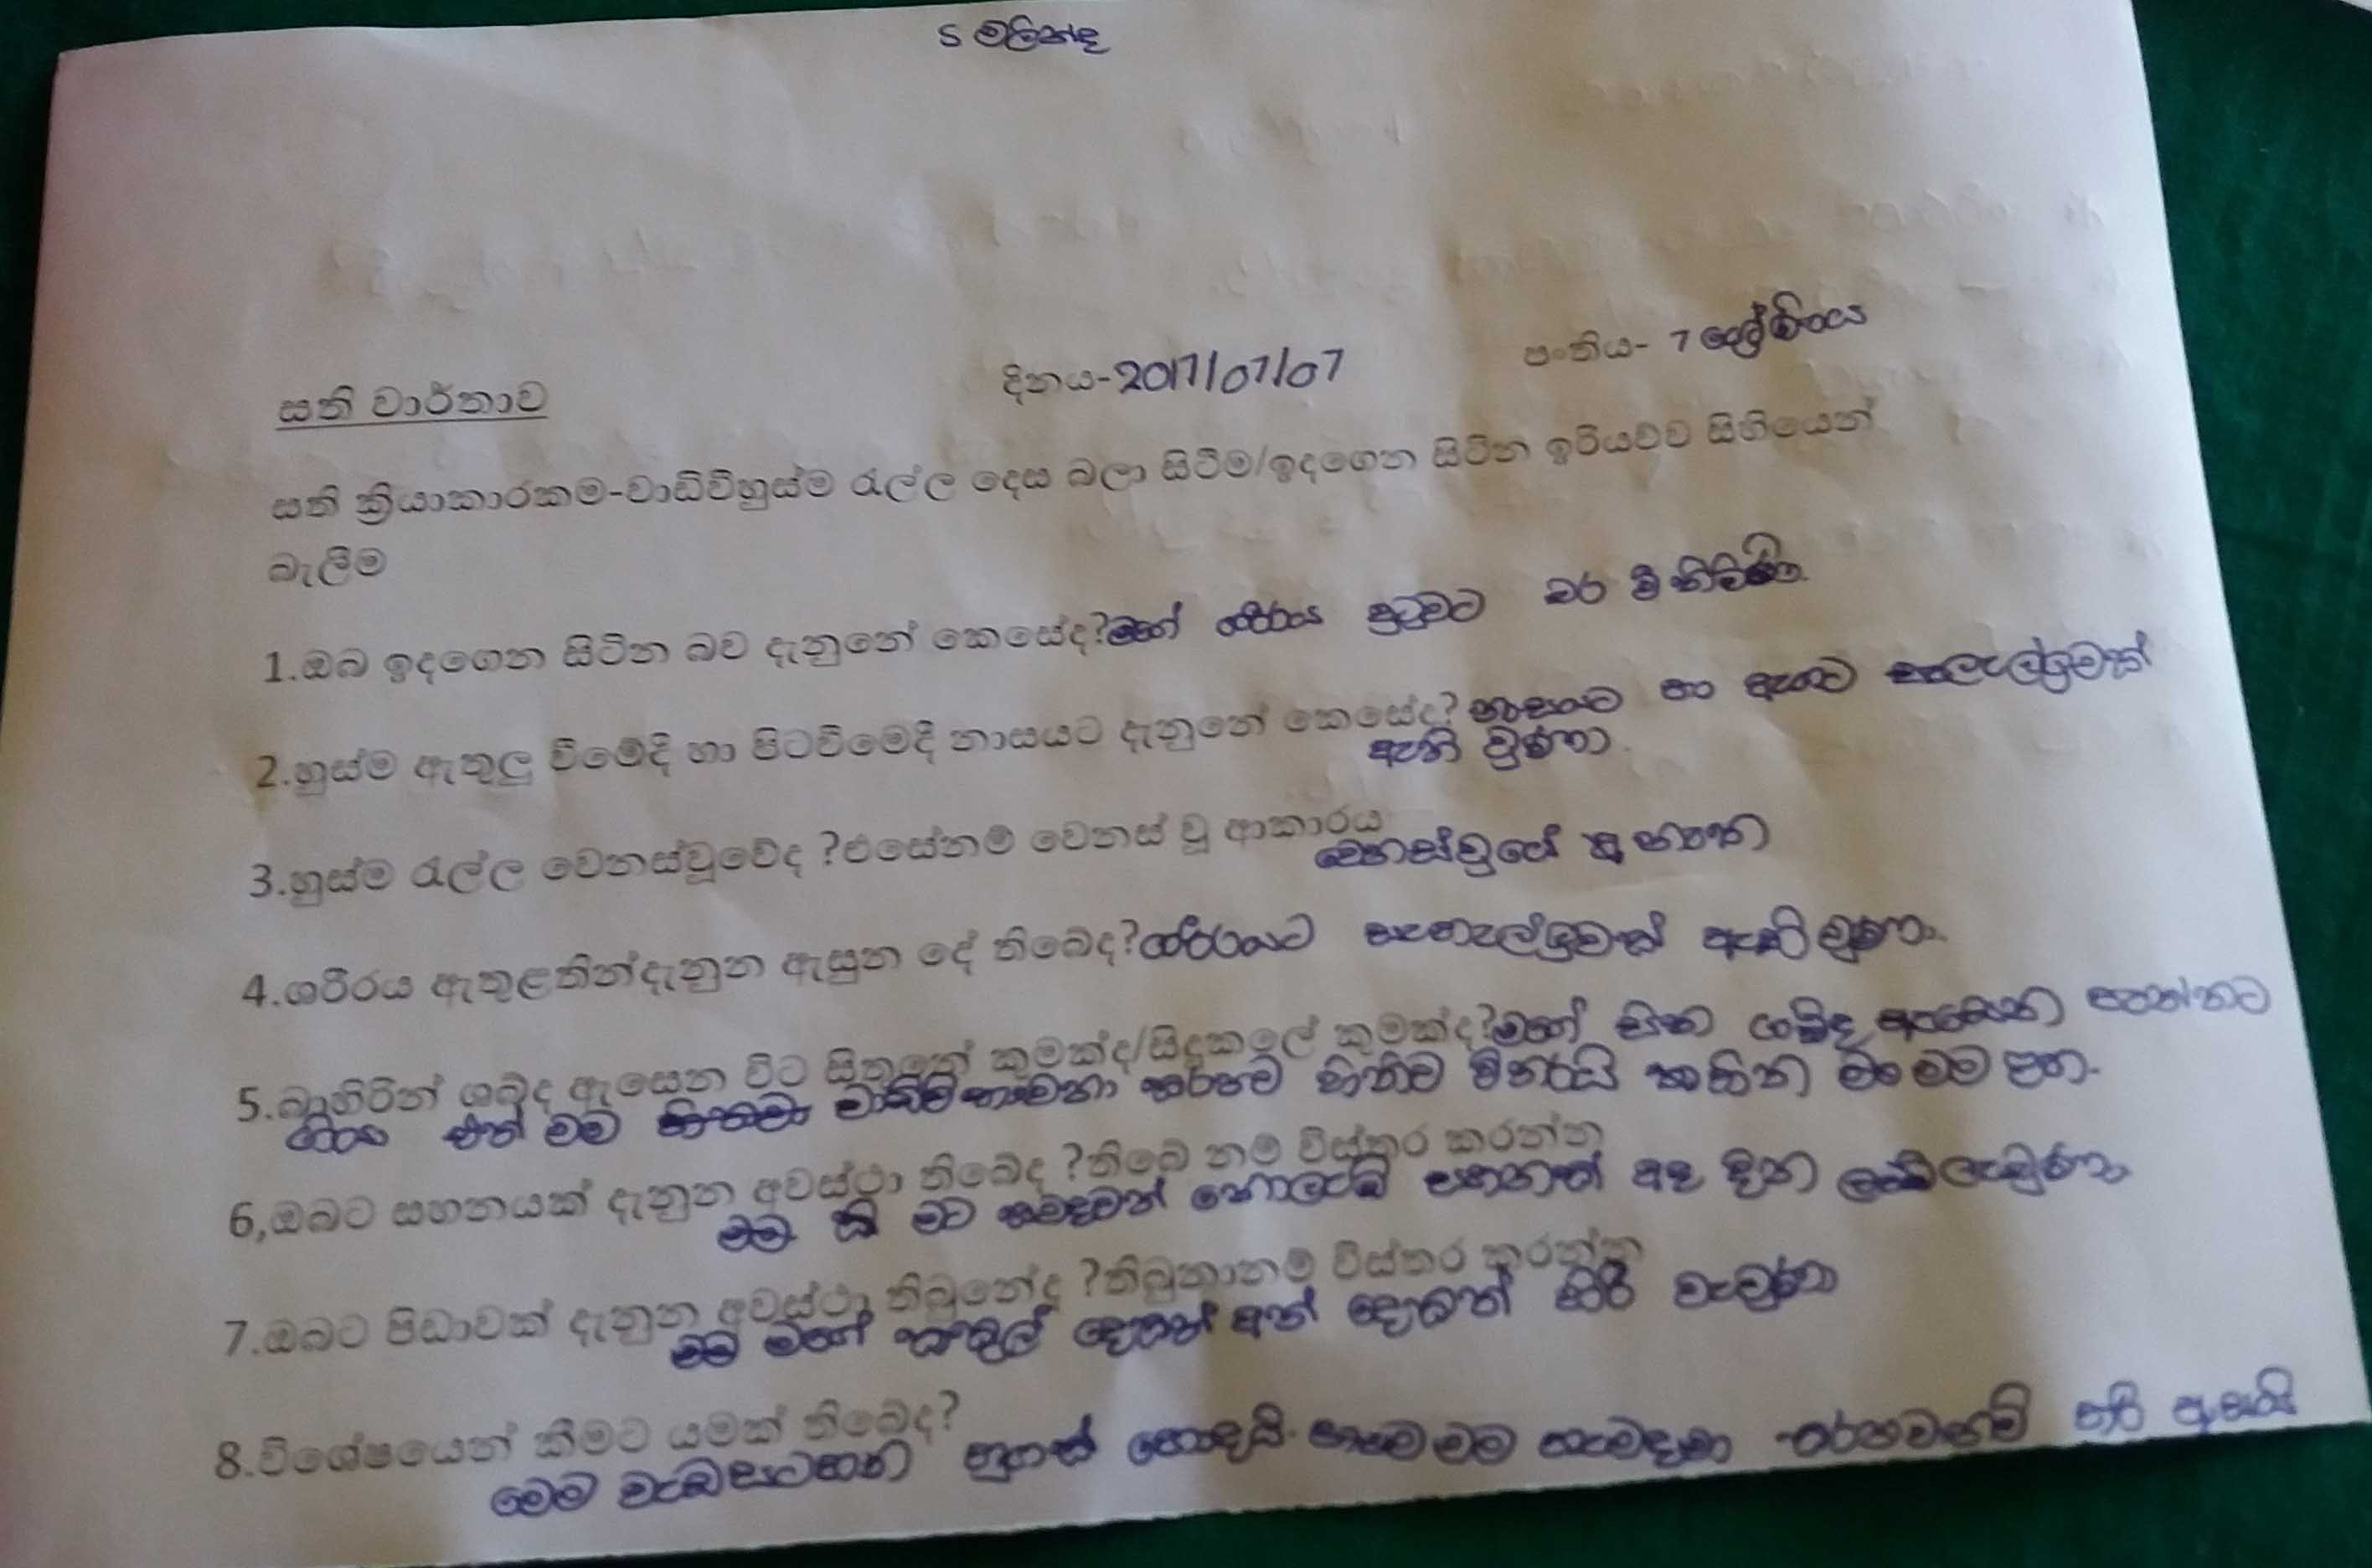 S මලින්ද
සති වාර්තාව දිනය-2017/07/07 පංතිය- 7 ශ්‍රේණිය
සති ක්‍රියාකාරකම-වාඩිවීහුස්ම රැල්ල දෙස බලා සිටීම/ඉදගෙන සිටින ඉරියව්ව සිහියෙන්
බැලීම
1.ඔබ ඉදගෙන සිටින බව දැනුනේ කෙසේද?මගේ ශරීරය පුටුවට බර වී තිබිණි.
2.හුස්ම ඇතුලු වීමේදී හා පිටවීමෙදී නාසයට දැනුනේ කෙසේද? නාසයට හා ඇගට සැහැල්ලුවක්
ඇති වුණා.
3.හුස්ම රැල්ල වෙනස්වූවේද ?එසේනම් වෙනස් වූ ආකාරය
වෙනස්වුයේ නැත
4.ශරීරය ඇතුළතින්දැනුන ඇසුන දේ තිබේද?ශරීරයට සැහැල්ලුවක් ඇති වුණා.
5.බාහිරින් ශබ්ද ඇසෙන විට සිතුනේ කුමක්ද/සිදුකලේ කුමක්ද?මගේ සිත ශබ්ද ඇසෙන පැත්තට
ගියා එත් මම
6,ඔබට සහනයක් දැනුන අවස්ථා තිබේද ?තිබේ නම් විස්තර කරන්න
මට සමදවත් නොලැබූ සහනයක් අද දින ලැබුණා.
7.ඔබට පිඩාවක් දැනුන අවස්ථා තිබුනේද ?තිබුනානම් විස්තර කරන්න
මගේ කකුල් දෙකත් අත් දෙකත් හිරි වැටුණා
8.විශේෂයෙන් කීමට යමක් තිබේද?
මෙම වැඩසටහන හුගක් හොඳයි. මම හැමදාම